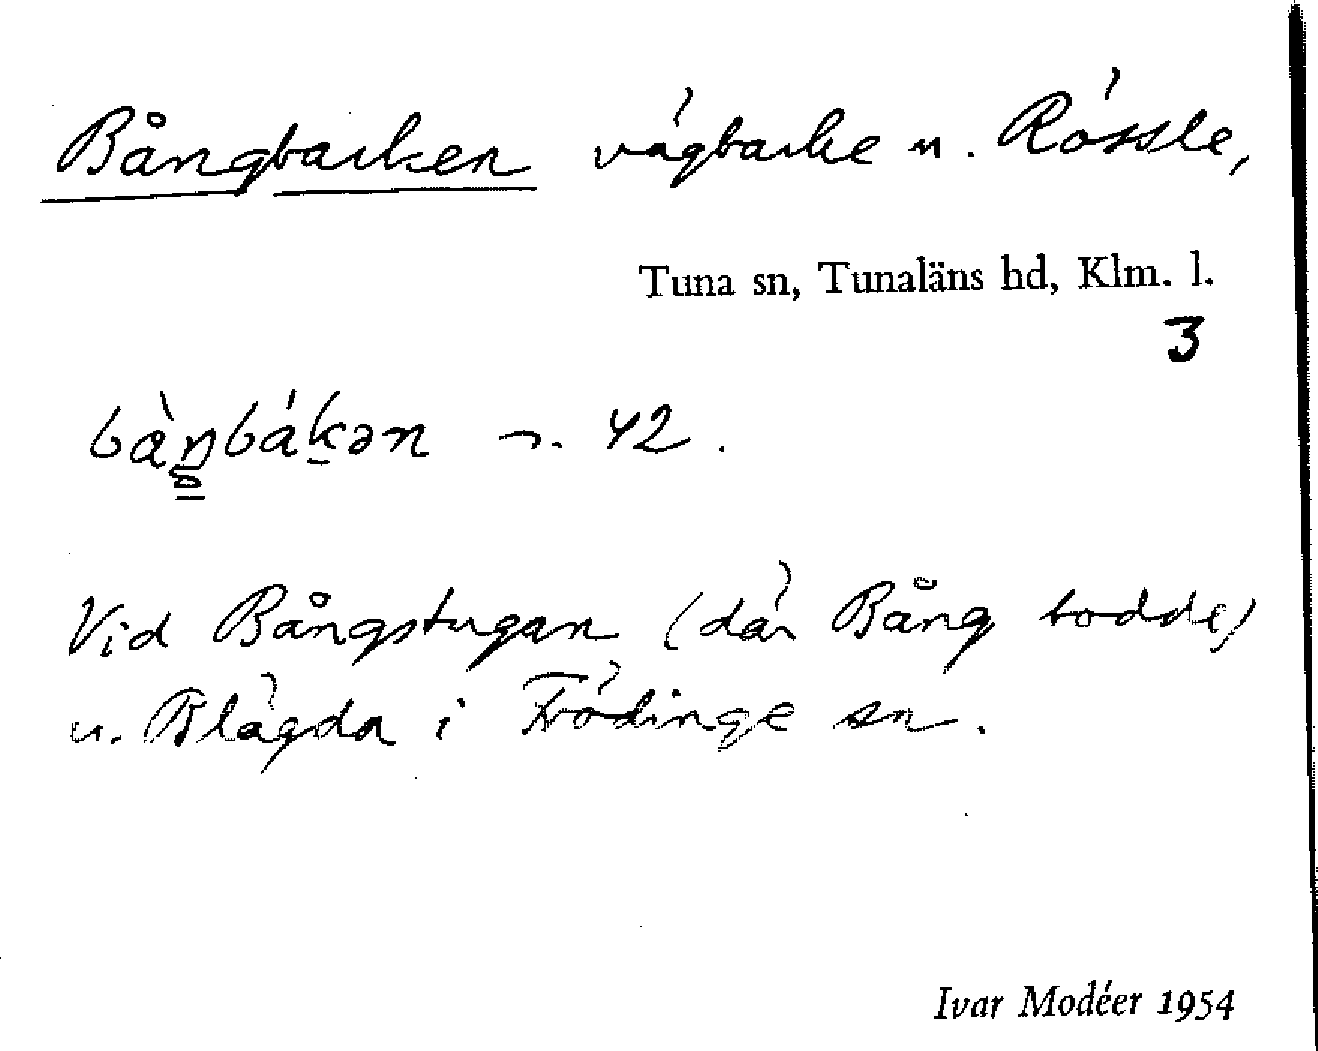 Bångbacken vägbacke u. Rössle,
Tuna sn, Tunaläns hd, Klm. l.
3
42.
Vid Bångstugan (där Bång bodde)
u. Blägda i Frödinge sn.
Ivar Modéer 1954